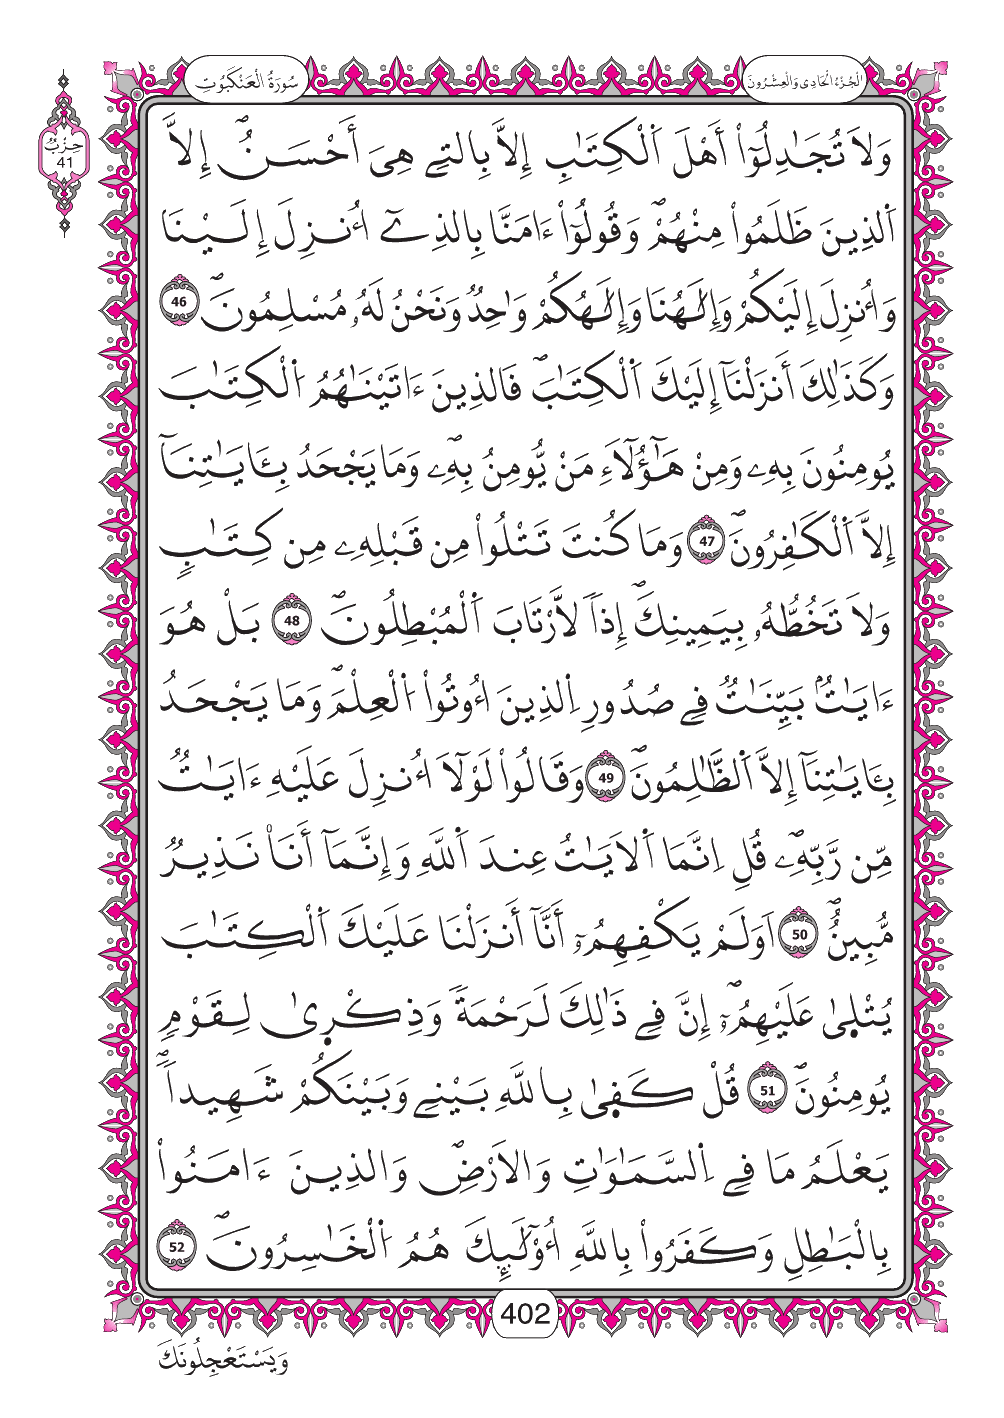 الجُزْءُ الْحَادِى وَالْعِشْرُونَ
سُورَةُ الْعَنْكَبُوتِ
حِزْبٌ
41
وَلَا تُجَٰدِلُوٓاْ أَهْلَ اَ۬لْكِتَٰبِ إِلَّا بِالتِے هِىَ أَحْسَنُۖ إِلَّا
اَ۬لذِينَ ظَلَمُواْ مِنْهُمْۖ وَقُولُوٓاْ ءَامَنَّا بِالذِےٓ أُنزِلَ إِلَيْنَا
وَأُنزِلَ إِلَيْكُمْ وَإِلَٰهُنَا وَإِلَٰهُكُمْ وَٰحِدٌ وَنَحْنُ لَهُۥ مُسْلِمُونَۖ 46
وَكَذَٰلِكَ أَنزَلْنَآ إِلَيْكَ اَ۬لْكِتَٰبَۖ فَالذِينَ ءَاتَيْنَٰهُمُ اُ۬لْكِتَٰبَ
يُومِنُونَ بِهِۦ وَمِنْ هَٰٓؤُلَآءِ مَنْ يُّومِنُ بِهِۦۖ وَمَا يَجْحَدُ بِـَٔايَٰتِنَآ
إِلَّا اَ۬لْكَٰفِرُونَۖ 47 وَمَا كُنتَ تَتْلُواْ مِن قَبْلِهِۦ مِن كِتَٰبٍ
وَلَا تَخُطُّهُۥ بِيَمِينِكَۖ إِذاٗ لَّارْتَابَ اَ۬لْمُبْطِلُونَۖ 48 بَلْ هُوَ
ءَايَٰتُۢ بَيِّنَٰتٌ فِے صُدُورِ اِ۬لذِينَ أُوتُواْ اُ۬لْعِلْمَۖ وَمَا يَجْحَدُ
بِـَٔايَٰتِنَآ إِلَّا اَ۬لظَّٰلِمُونَۖ 49 وَقَالُواْ لَوْلَآ أُنزِلَ عَلَيْهِ ءَايَٰتٌ
مِّن رَّبِّهِۦۖ قُلِ اِنَّمَا اَ۬لَايَٰتُ عِندَ اَ۬للَّهِ وَإِنَّمَآ أَنَا۠ نَذِيرٌ
مُّبِينٌۖ 50 اَوَلَمْ يَكْفِهِمُۥٓ أَنَّآ أَنزَلْنَا عَلَيْكَ اَ۬لْكِتَٰبَ
يُتْلِىٰ عَلَيْهِمُۥٓۖ إِنَّ فِے ذَٰلِكَ لَرَحْمَةٗ وَذِكْرِىٰ لِقَوْمٖ
يُومِنُونَۖ 51 قُلْ كَفِىٰ بِاللَّهِ بَيْنِے وَبَيْنَكُمْ شَهِيداٗۖ
يَعْلَمُ مَا فِے اِ۬لسَّمَٰوَٰتِ وَالَارْضِۖ وَالذِينَ ءَامَنُواْ
بِالْبَٰطِلِ وَكَفَرُواْ بِاللَّهِ أُوْلَٰٓئِكَ هُمُ اُ۬لْخَٰسِرُونَۖ 52
402
وَيَسْتَعْجِلُونَكَ